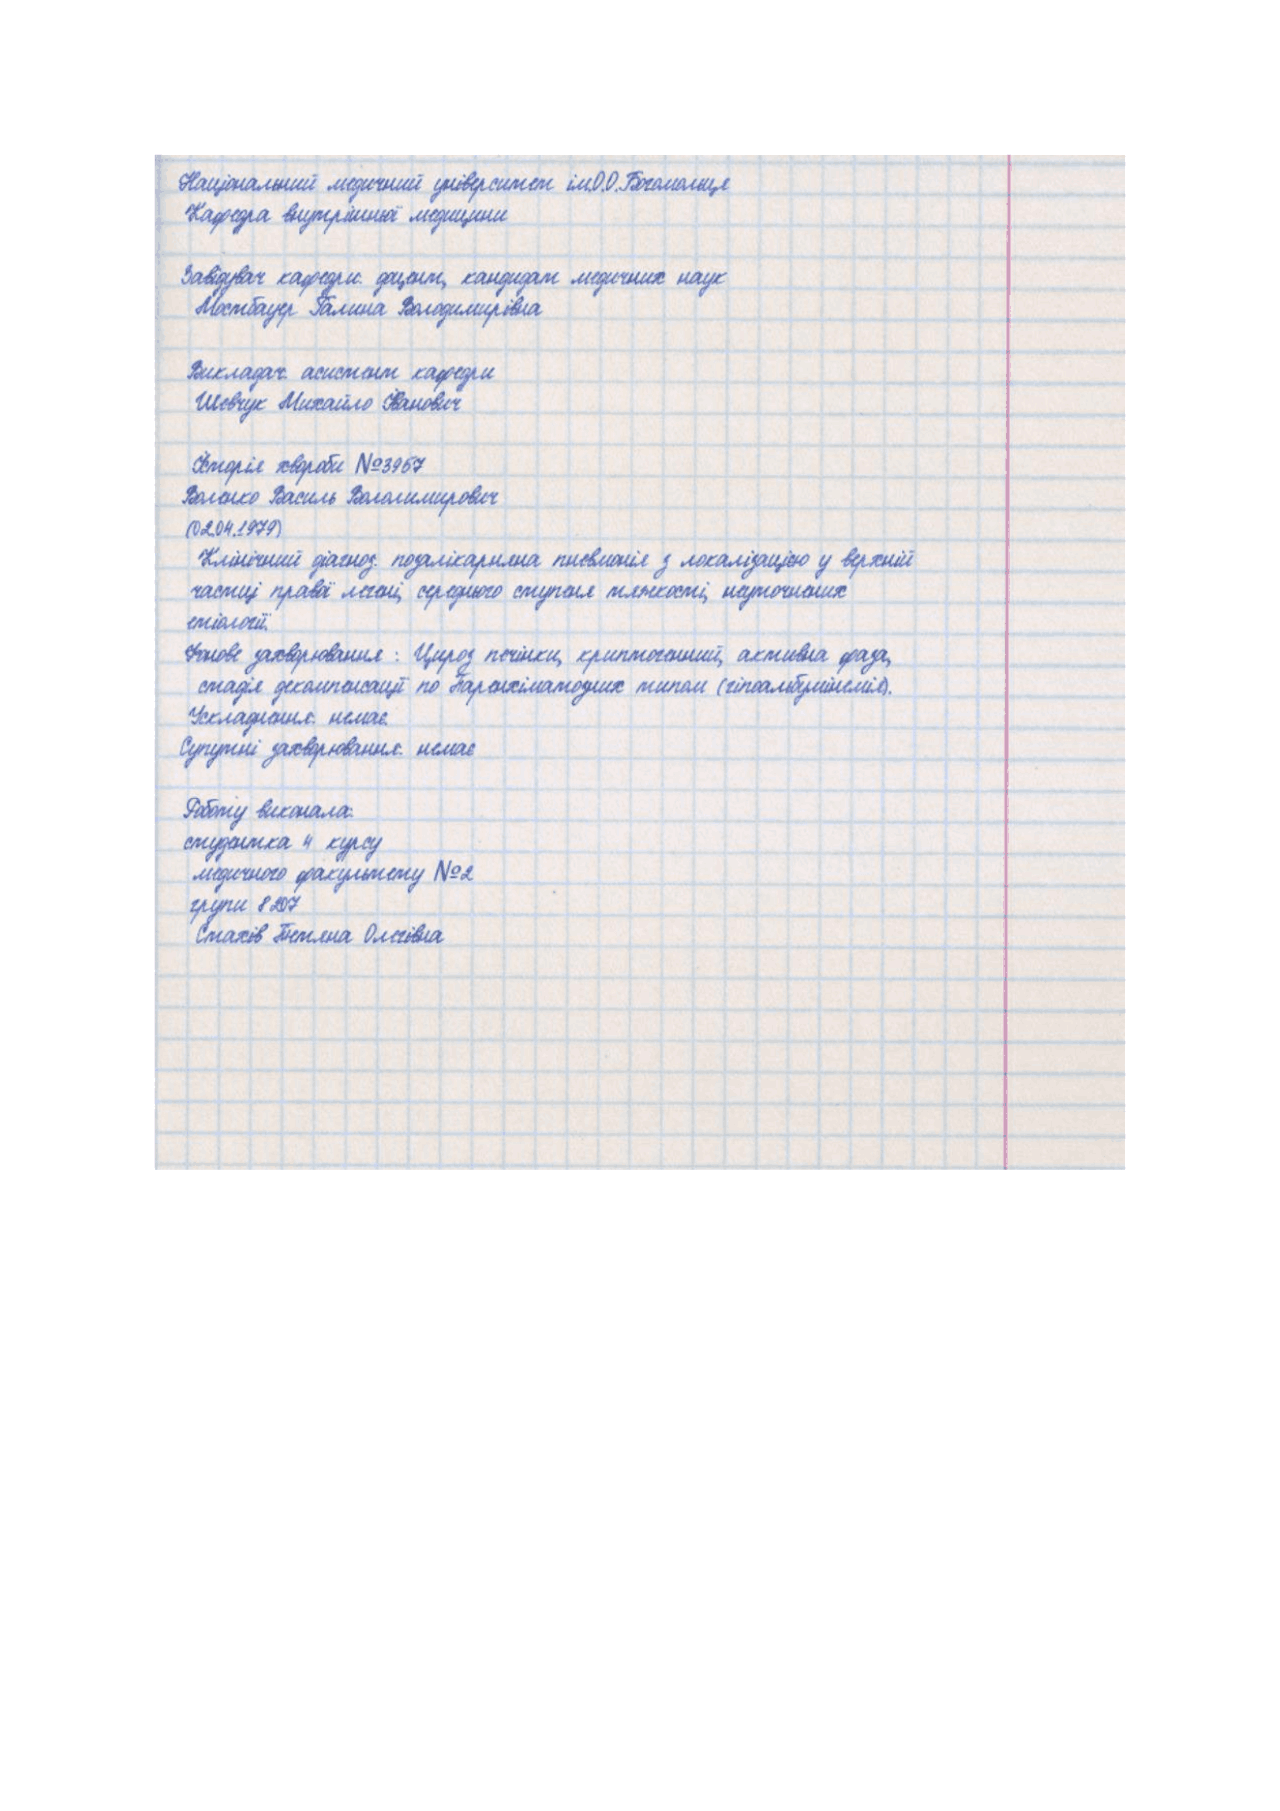 Національний медичний університет ім.О.О.Богомольця
Кафедра внутрішньої медицини
Завідувач кафедри: доцент, кандидат медичних наук
Мостбауер Галина Володимирівна
Викладач: асистент кафедри
Шевчук Михайло Іванович
Історія хвороби №3957
Воленко Василь Вололимирович
(02.04.1979)
Клінічний діагноз: позалікарняна пневмонія з локалізацією у верхній
частиці правої легені, середнього ступеня тяжкості, неуточнених
етіології.
Фонове захворювання : Цироз печінки, криптогенний, активна фаза,
стадія декомпенсації по Паренхіматозних типом (гіпоальбумінемія).
Ускладнення: немає.
Супутні захворювання: немає
Роботу виконала:
студентка 4 курсу
медичного факультету №2
групи 8207
Стахів Тетяна Олегівна